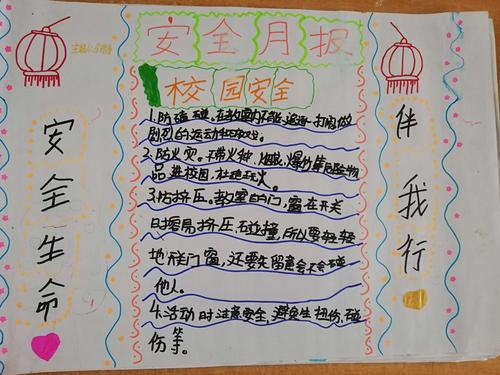 安全月报
校园安全
1.防磕碰。在教室内不能追逐、打闹、做
剧烈的运动和游戏。
2.防火灾。不带火种、烟花、爆竹等危险物
品进校园,杜绝玩火。
3.防挤压。教室的门,窗在开关
时容易挤压,碰撞,所以要轻轻
地关门窗,还要先留意会不会碰
他人。
4.活动时注意安全,避免生扭伤,碰
伤等。
安全生命
伴我行